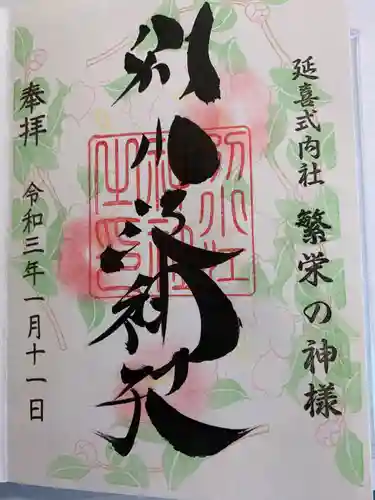 延喜式内社 繁栄の神様
別小江神社
奉拝
令和三年一月十一日